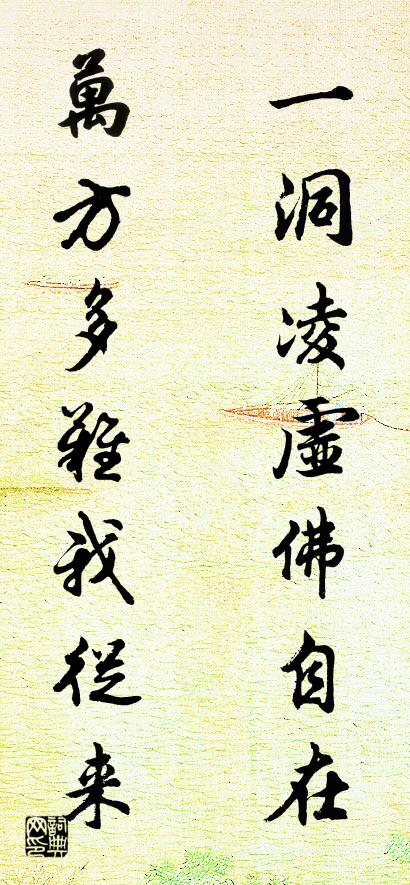 一洞凌虛佛自在
萬方多難我從来
詞典网印